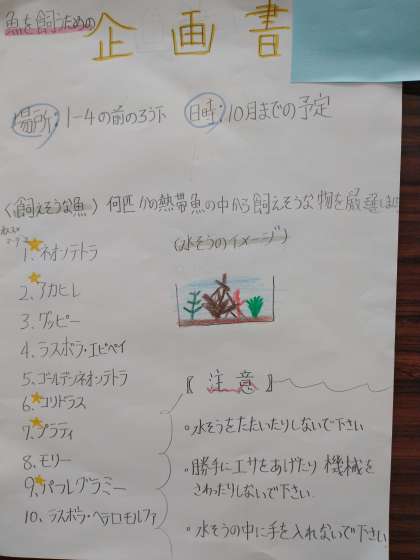 魚を飼うための
企画書
場所:1-4の前のろう下
日時:10月までの予定
〈飼えそうな魚〉何匹かの熱帯魚の中から飼えそうな物を厳選しま
(水そうのイメージ)
1. ネオンテトラ
2. アカヒレ
3. グッピー
4. ラスボラ・エピペイ
5. ゴールデンネオンテトラ
6. コリドラス
7. プラティ
8. モリー
9. パールグラミー
10. ラスボラ・ヘテロモルファ
〚注意〛
。水そうをたたいたりしないで下さい
。勝手にエサをあげたり機械を
さわったりしないで下さい.
。水そうの中に手を入れないで下さい